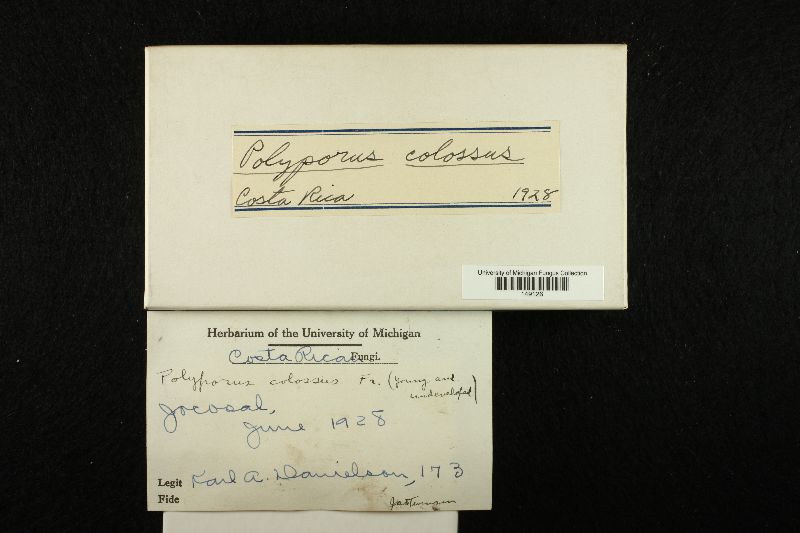 Polyporus colossus
Costa Rica 1928
University of Michigan Fungus Collection
149126
Herbarium of the University of Michigan
Costa Rican Fungi.
Polyporus colossus Fr. (young and
undeveloped)
Jocosal,
June 1928
Legit Karl A. Danielson, 173
Fide